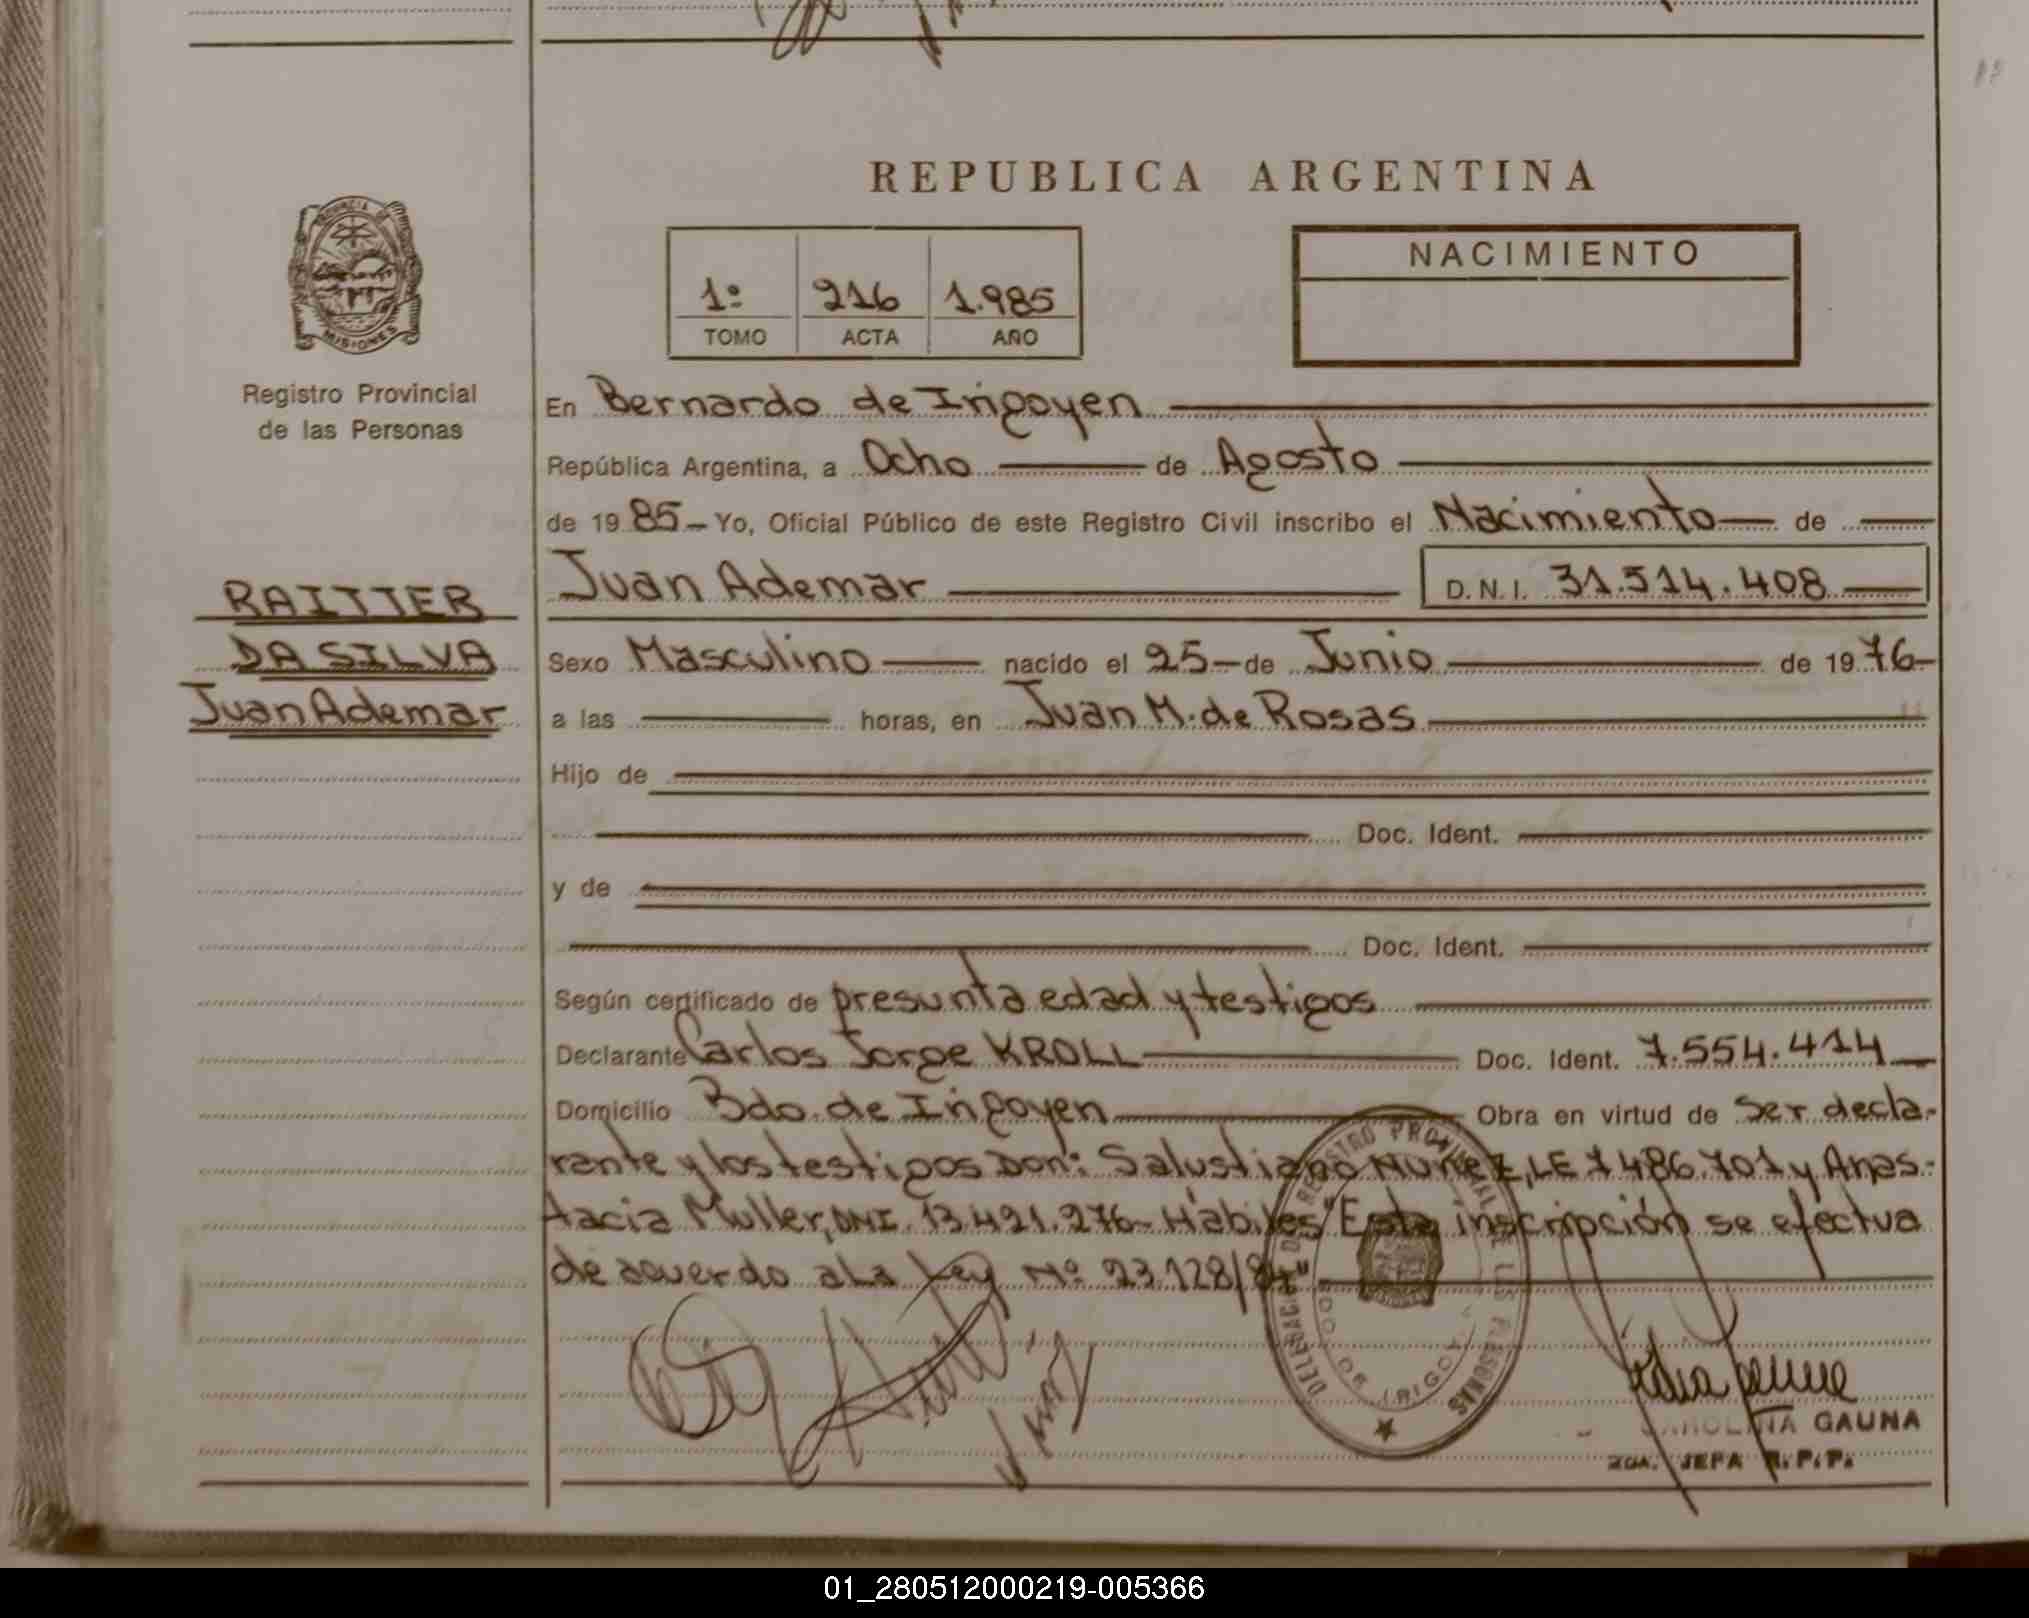 REPUBLICA ARGENTINA
PROVINCIA DE
MISIONES
Registro Provincial
de las Personas
1º 216 1.985
TOMO ACTA AÑO
NACIMIENTO
En Bernardo de Irigoyen
República Argentina, a Ocho de Agosto
de 19 85 - Yo, Oficial Público de este Registro Civil inscribo el Nacimiento de
Juan Ademar D.N.I. 31.514.408
RAITTER
DA SILVA
Juan Ademar
Sexo Masculino nacido el 25 - de Junio de 19 76 -
a las horas, en Juan M. de Rosas
Hijo de
Doc. Ident.
y de
Doc. Ident.
Según certificado de presunta edad y testigos
Declarante Carlos Jorge KROLL Doc. Ident. 7.554.414
Domicilio Bdo. de Irigoyen Obra en virtud de Ser decla-
rante y los testigos Don: Salustiano Nuñez, LE 7486.701 y Anas-
tacia Muller, DNI. 13.421.276 - Hábiles "Esta inscripción se efectua
de acuerdo a la Ley Nº 23.128/84"
DELEGACION DEL REGISTRO PROVINCIAL DE LAS PERSONAS
BDO. DE IRIGOYEN
CAROLINA GAUNA
2DA. JEFA R.P.P.
01_280512000219-005366